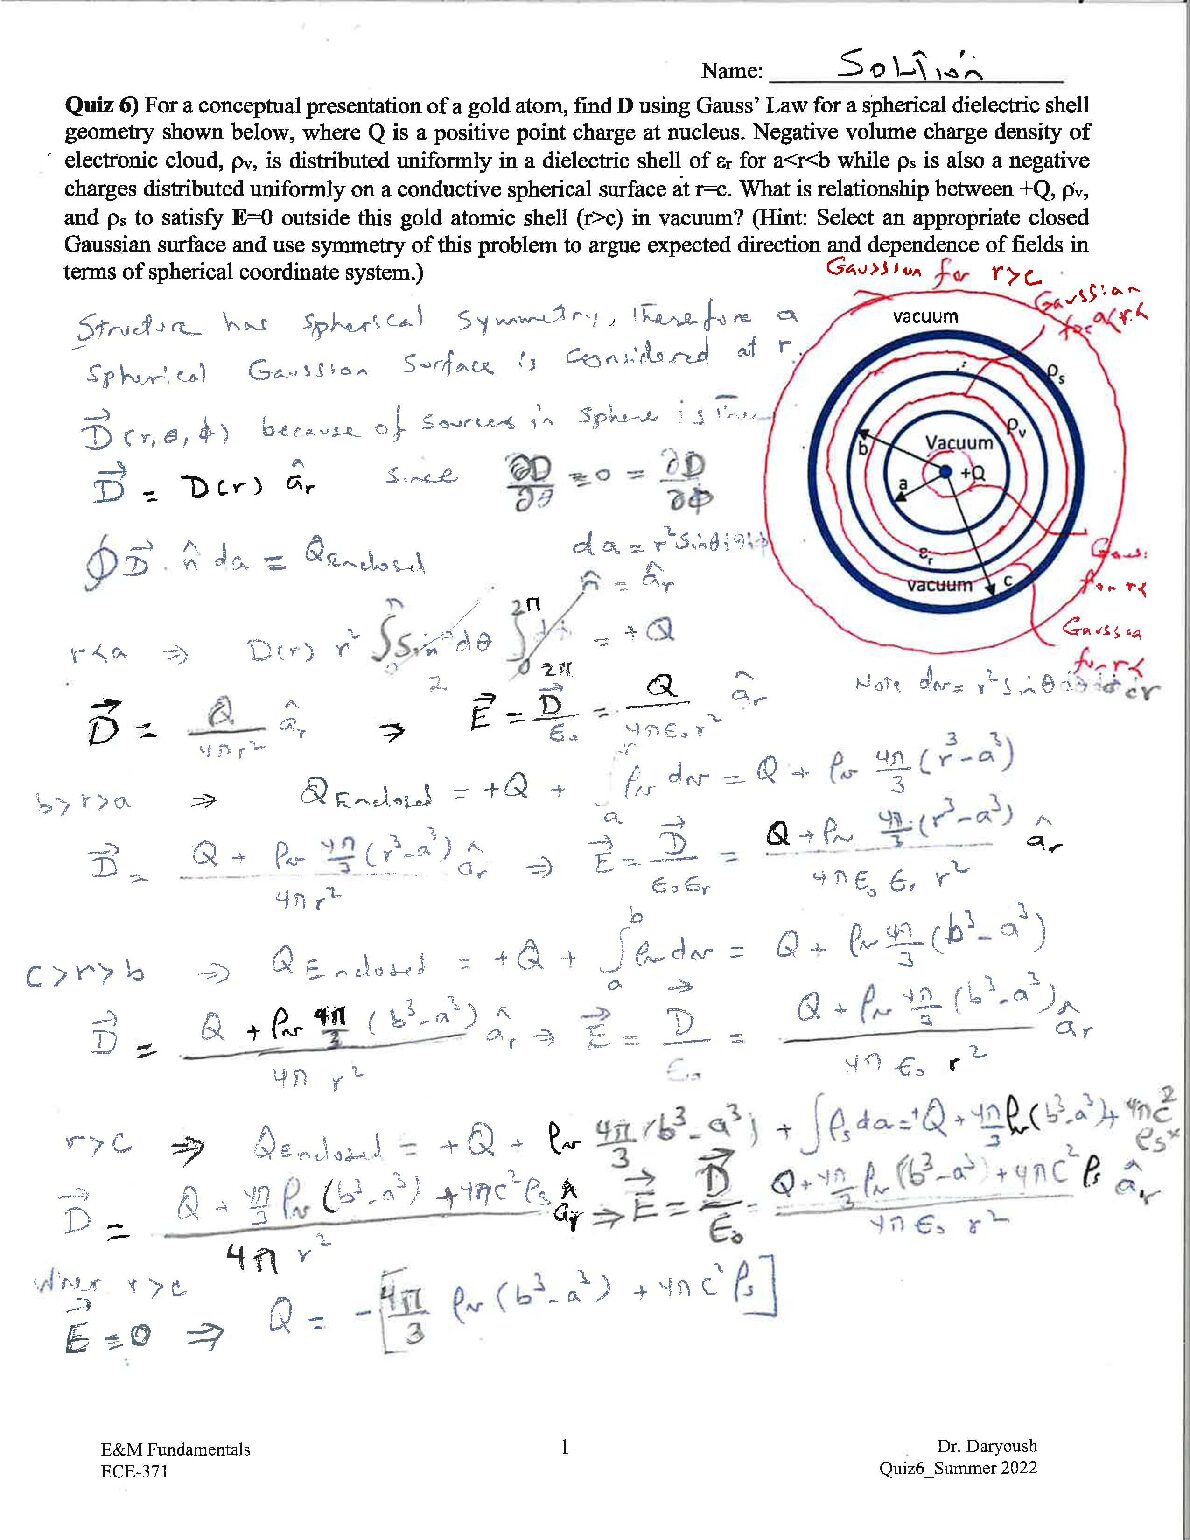 Name: Solution
Quiz 6) For a conceptual presentation of a gold atom, find D using Gauss' Law for a spherical dielectric shell
geometry shown below, where Q is a positive point charge at nucleus. Negative volume charge density of
electronic cloud, ρv, is distributed uniformly in a dielectric shell of εr for a<r<b while ρs is also a negative
charges distributed uniformly on a conductive spherical surface at r=c. What is relationship between +Q, ρv,
and ρs to satisfy E=0 outside this gold atomic shell (r>c) in vacuum? (Hint: Select an appropriate closed
Gaussian surface and use symmetry of this problem to argue expected direction and dependence of fields in
terms of spherical coordinate system.)
Gaussian for r>c
Gaussian
for a<r<
vacuum
ρs
ρv
Vacuum
b
+Q
a
εr
vacuum
c
Gaus
for r<
Gaussia
for r<
Structure has Spherical Symmetry, Therefore a
Spherical Gaussian Surface is Considered at r.
D⃗(r, θ, φ) because of sources in sphere is
D⃗ = D(r) âr since ∂D/∂θ = 0 = ∂D/∂φ
∮ D⃗ · n̂ da = QEnclosed da = r² sinθ
n̂ = âr
r<a ⇒ D(r) r² ∫₀^π sinθ dθ ∫₀^2π = +Q
2 2π
D⃗ = Q/4πr² âr ⇒ E⃗ = D⃗/ε₀ = Q/4πε₀r² âr
Note dv = r² sinθ dr
b>r>a ⇒ QEnclosed = +Q + ∫ₐ^r ρv dv = Q + ρv 4π/3 (r³-a³)
D⃗ = Q + ρv 4π/3 (r³-a³)/4πr² âr ⇒ E⃗ = D⃗/ε₀εr = Q + ρv 4π/3 (r³-a³)/4πε₀εr r² âr
c>r>b ⇒ QEnclosed = +Q + ∫ₐ^b ρv dv = Q + ρv 4π/3 (b³-a³)
D⃗ = Q + ρv 4π/3 (b³-a³)/4πr² âr ⇒ E⃗ = D⃗/ε₀ = Q + ρv 4π/3 (b³-a³)/4πε₀r² âr
r>c ⇒ QEnclosed = +Q + ρv 4π/3 (b³-a³) + ∫ρs da = +Q + 4π/3 ρv (b³-a³) + 4πc² ρs
D⃗ = Q + 4π/3 ρv (b³-a³) + 4πc² ρs/4πr² âr ⇒ E⃗ = D⃗/ε₀ = Q + 4π/3 ρv (b³-a³) + 4πc² ρs/4πε₀r² âr
when r>c
E⃗ = 0 ⇒ Q = -[4π/3 ρv (b³-a³) + 4πc² ρs]
E&M Fundamentals 1 Dr. Daryoush
ECE-371 Quiz6_Summer 2022